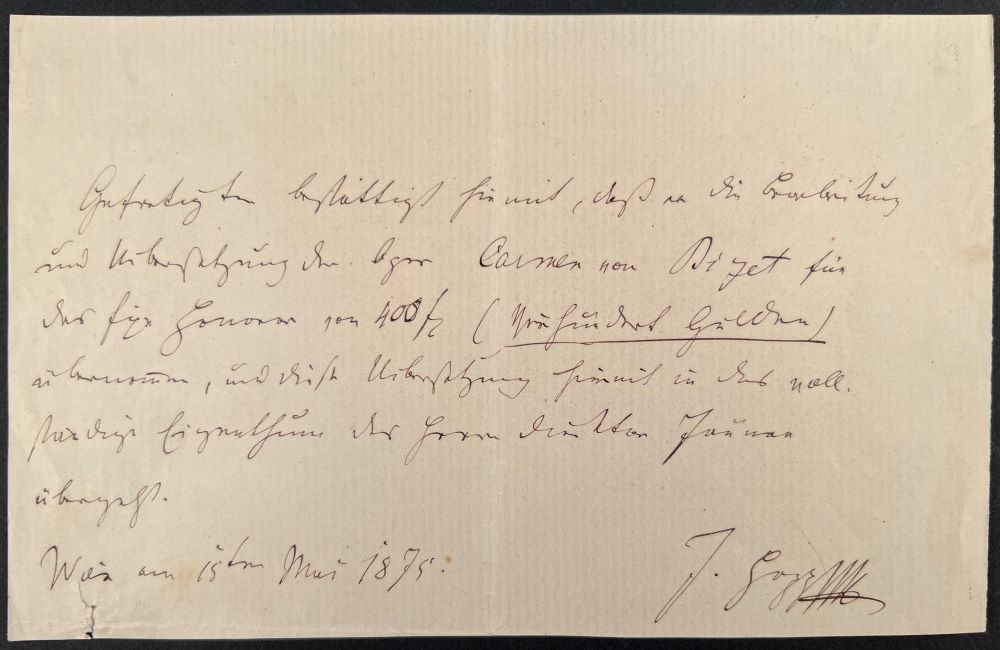 Gefertigter bestättigt hiemit, daß er die Bearbeitung
und Uibersetzung der Oper Carmen von Bizet für
das fixe Honorar von 400 fl (Vierhundert Gulden)
übernomen, und diese Uibersetzung hiemit in das voll-
ständige Eigenthum des Herrn Direktor Jauner
übergeht.
Wien am 15ten Mai 1875.
J. Hopp